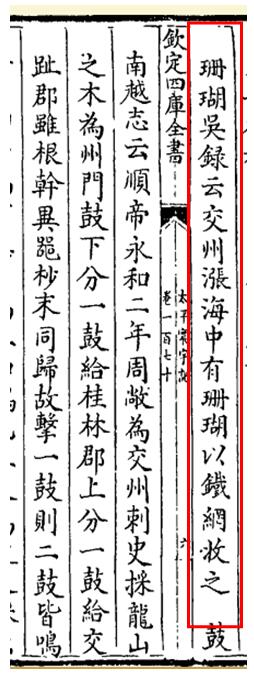 珊瑚吳録云交州漲海中有珊瑚以鐵網收之　鼓
欽定四庫全書
太平寰宇記
卷一百七十
六
南越志云順帝永和二年周敞為交州刺史採龍山
之木為州門鼓下分一鼓給桂林郡上分一鼓給交
趾郡雖根幹異器杪末同歸故擊一鼓則二鼓皆鳴